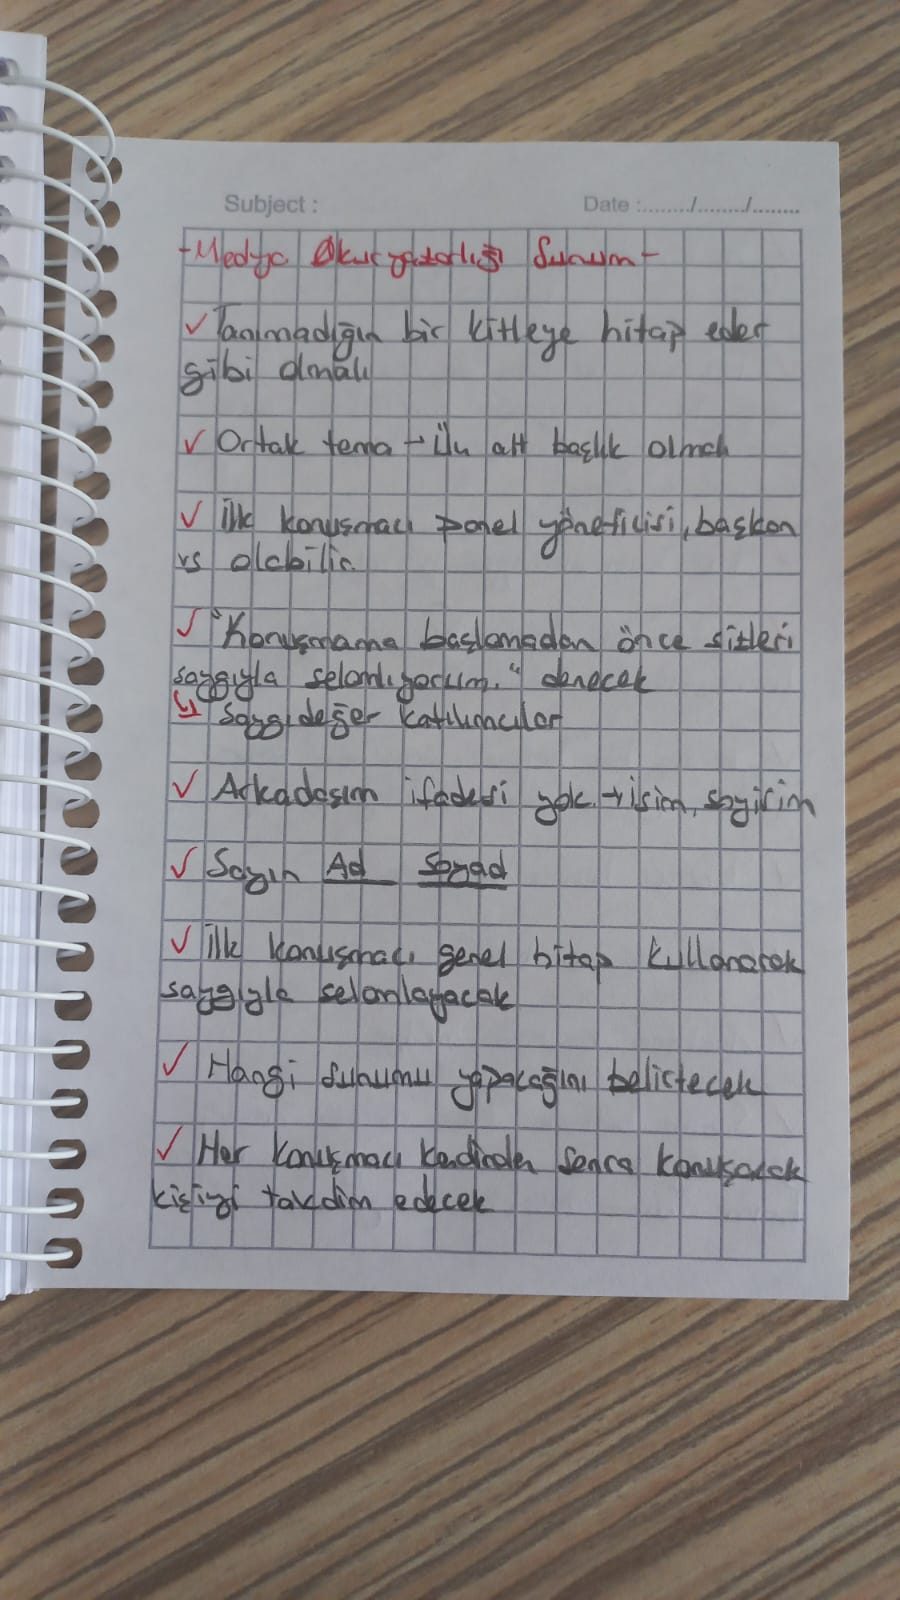 Subject :
Date :......../......../........
-Medya Okuryazarlığı Sunum-
✓ Tanımadığın bir kitleye hitap eder
gibi olmalı
✓ Ortak tema → alt başlık olmalı
✓ İlk konuşmacı panel yöneticisi, başkan
vs olabilir.
✓ "Konuşmama başlamadan önce sizleri
saygıyla selamlıyorum." denecek
↳ Saygıdeğer katılımcılar
✓ Arkadaşım ifadesi yok → isim, soyisim
✓ Sayın Ad Soyad
✓ İlk konuşmacı genel hitap kullanarak
saygıyla selamlayacak
✓ Hangi sunumu yapacağını belirtecek
✓ Her konuşmacı kendinden sonra konuşacak
kişiyi takdim edecek